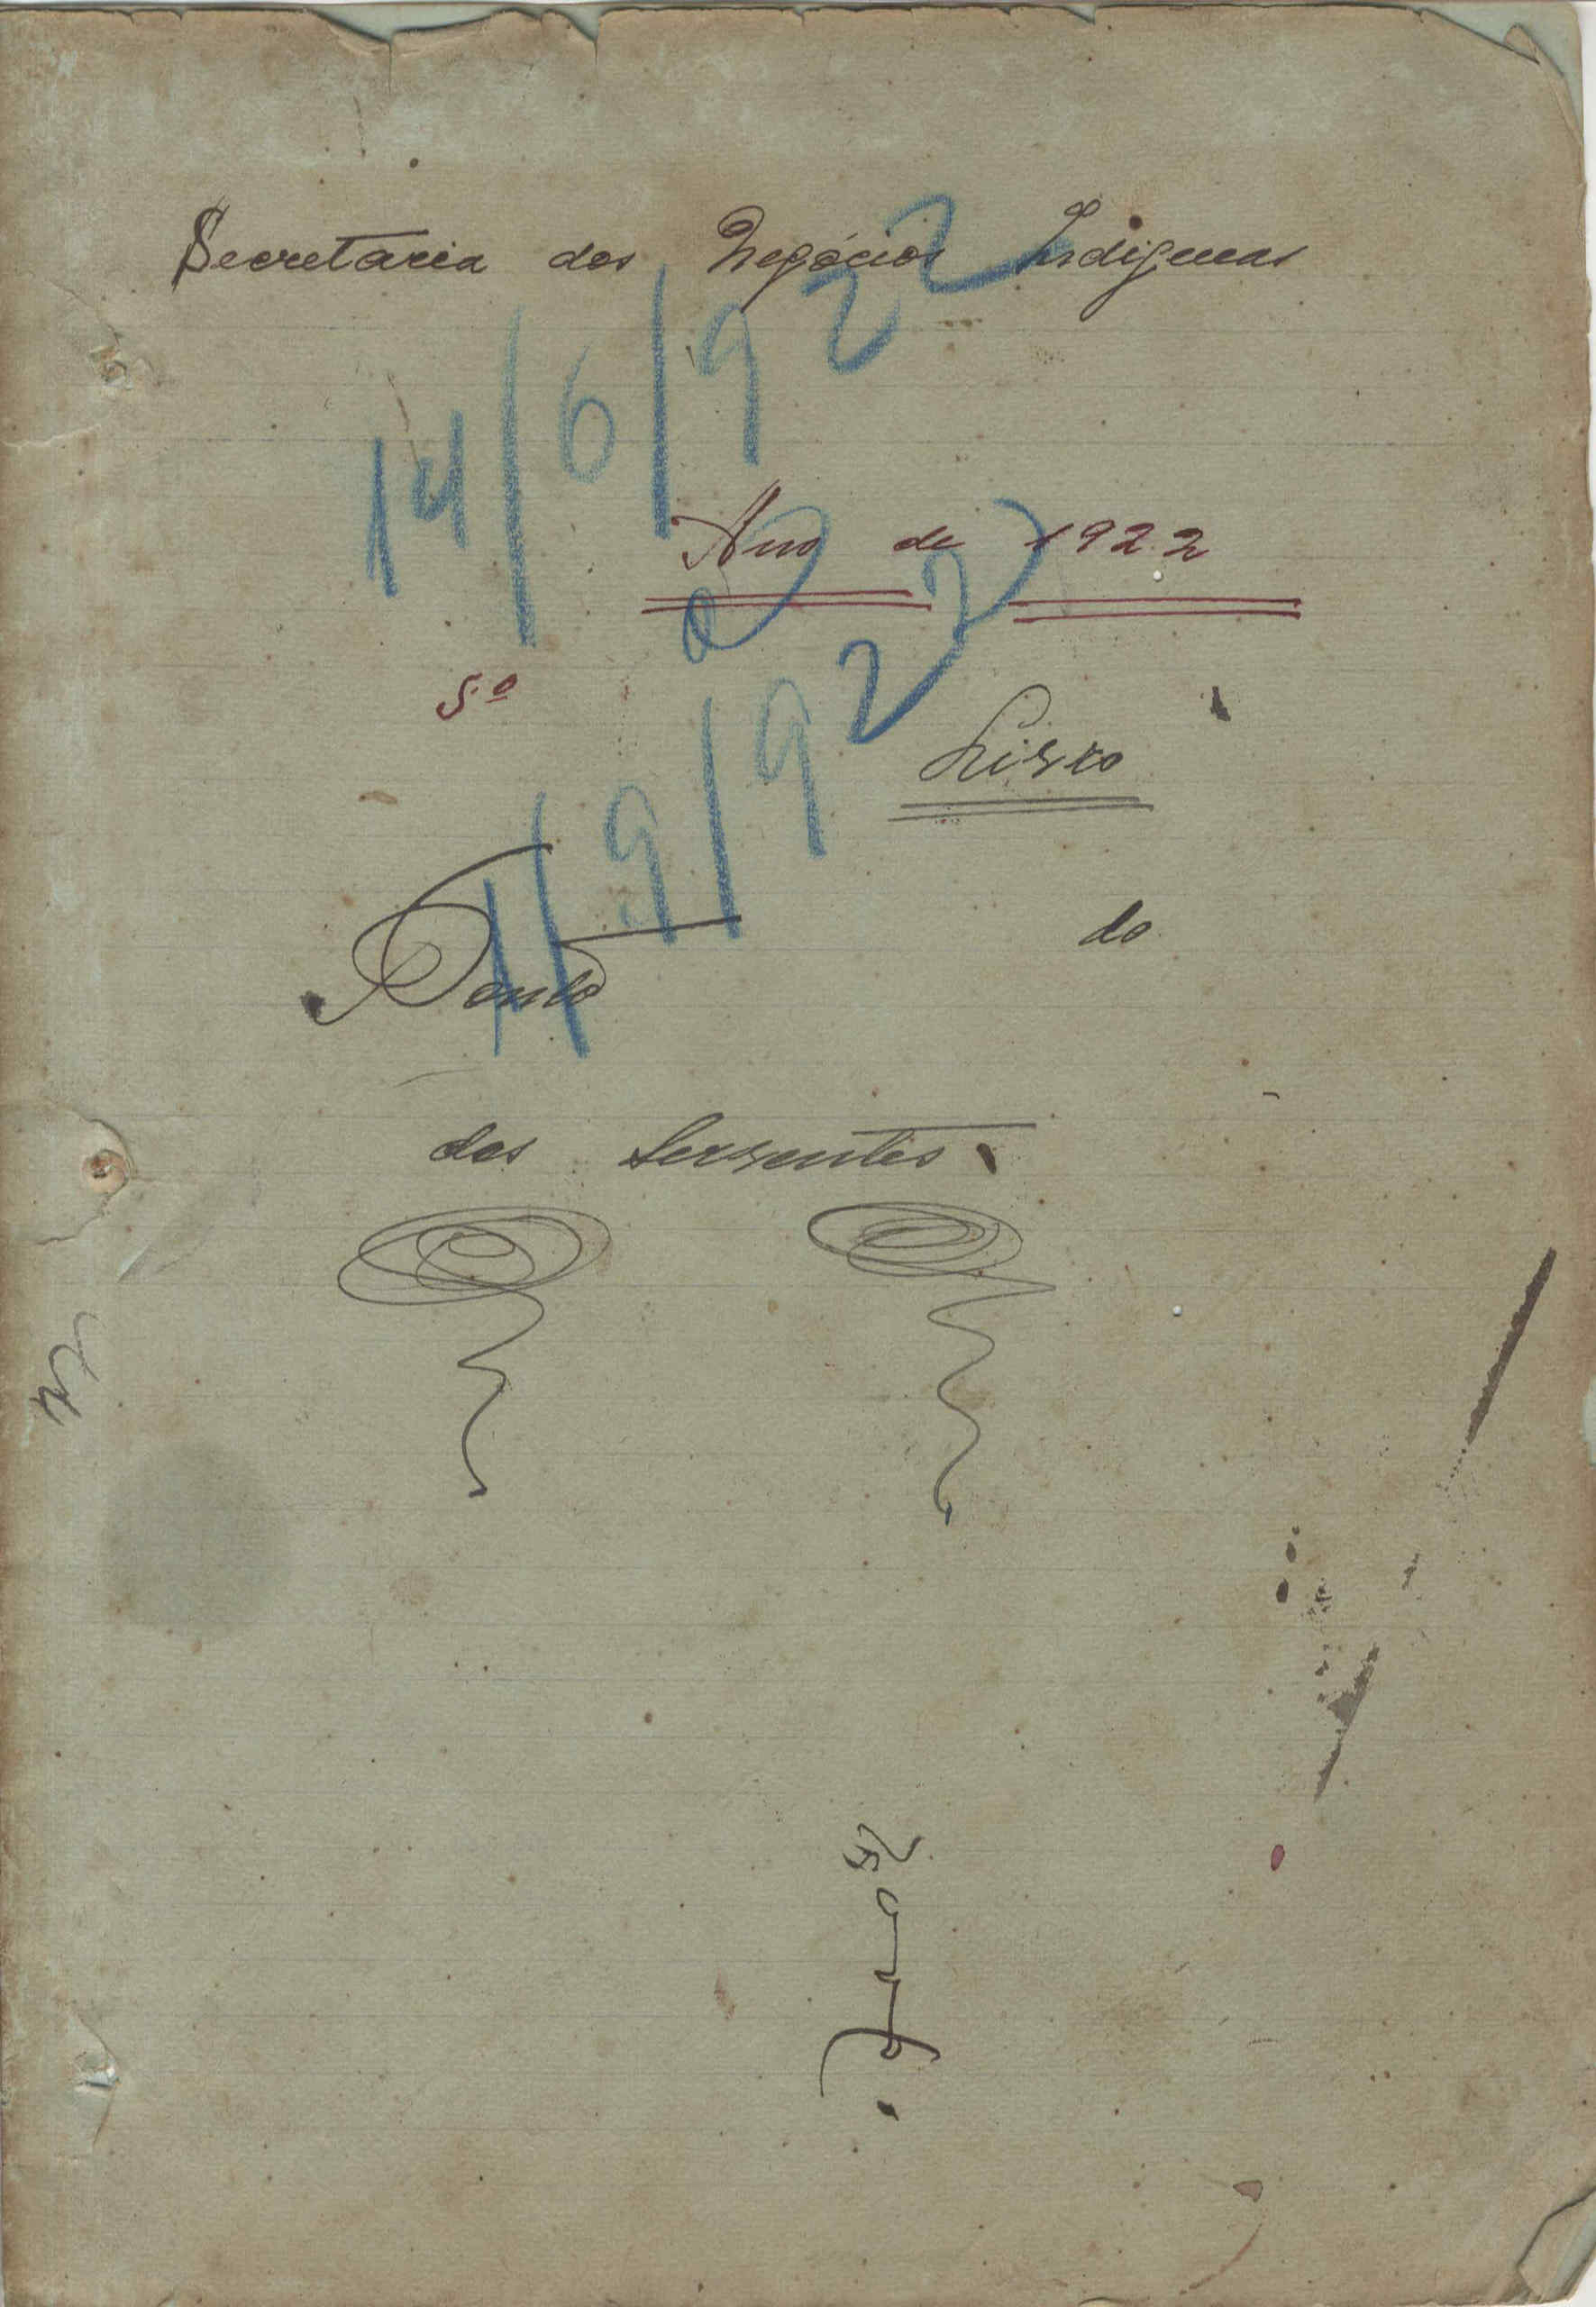 Secretaria dos Negócios Indigenas
14/6/922
Ano de 1922
a
5.º
Livro
1/9/922
do
Ponto
dos Serventes